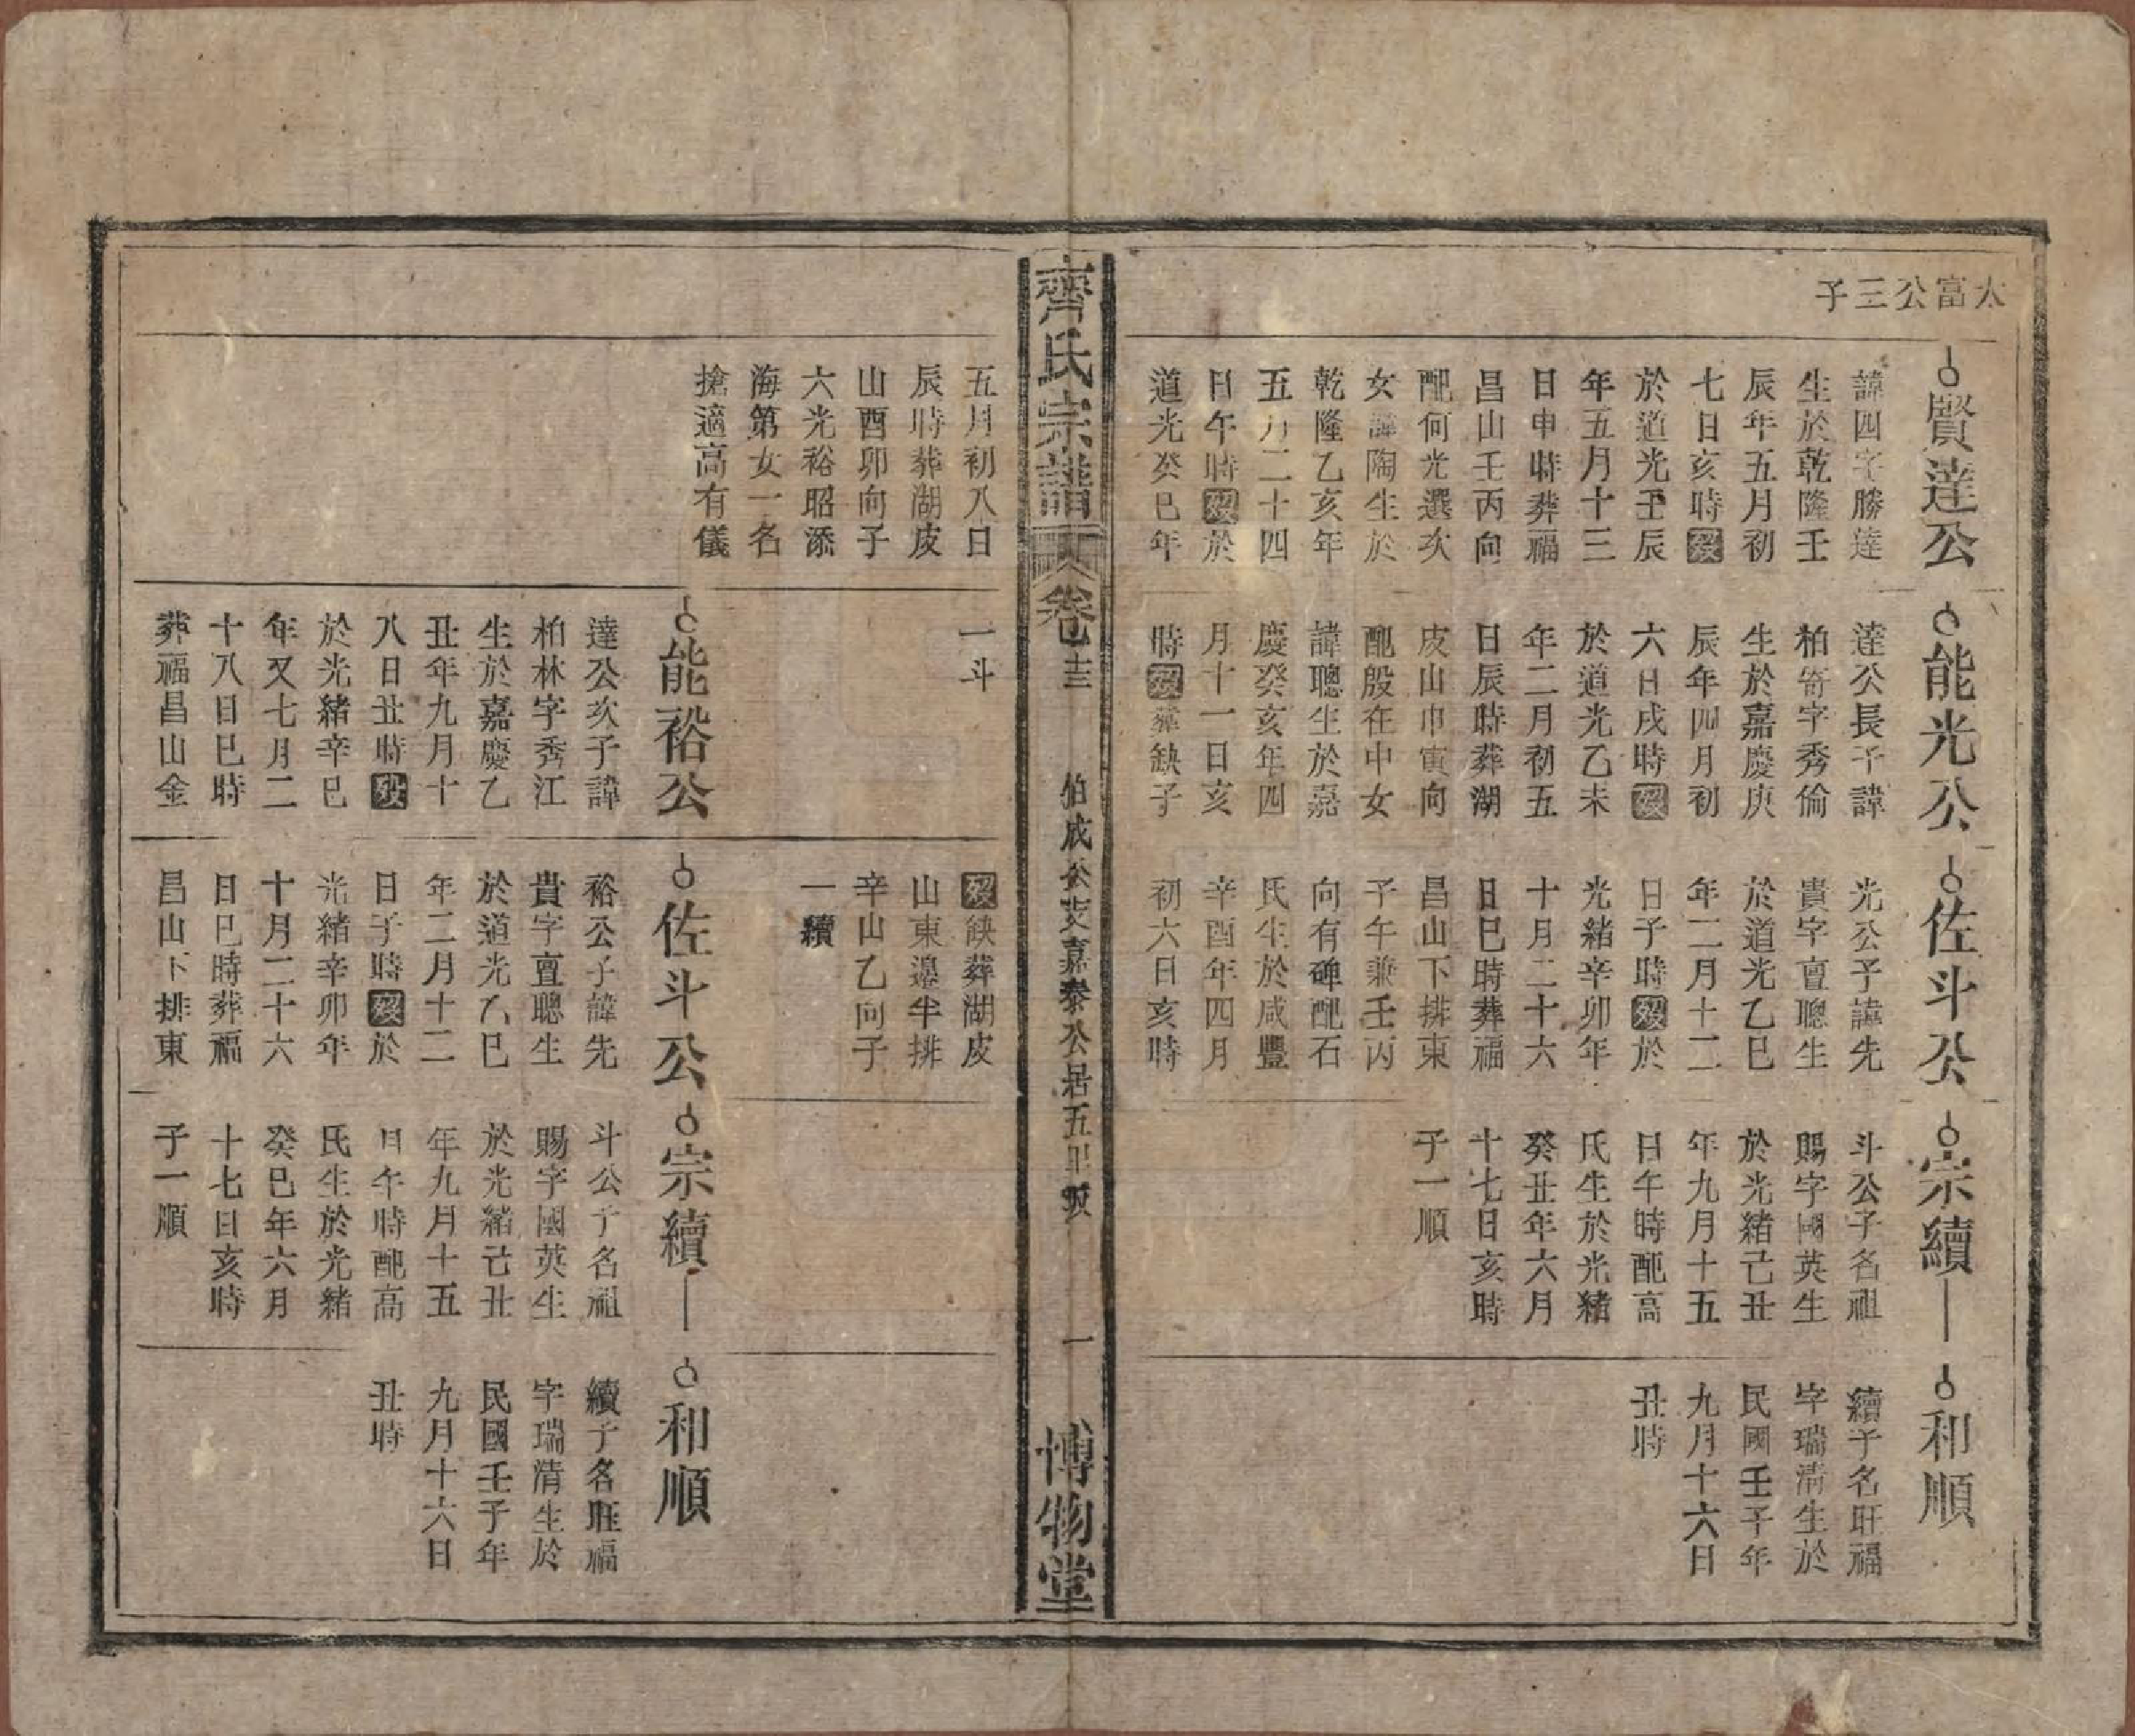 太富公三子
賢達公
諱四字勝達
生於乾隆壬
辰年五月初
七日亥時歿
於道光壬辰
年五月十三
日申時葬福
昌山壬丙向
配何光選次
女諱陶生於
乾隆乙亥年
五月二十四
日午時歿於
道光癸巳年
能光公
達公長子諱
柏  字秀倫
生於嘉慶庚
辰年四月初
六日戌時歿
於道光乙未
年二月初五
日辰時葬湖
皮山申寅向
配殷在中女
諱聰生於嘉
慶癸亥年四
月十一日亥
時歿葬缺子
佐斗公
光公子諱先
貴字亶聰生
於道光乙巳
年二月十二
日子時歿於
光緒辛卯年
十月二十六
日巳時葬福
昌山下排東
子午兼壬丙
向有碑配石
氏生於咸豐
辛酉年四月
初六日亥時
宗續
斗公子名祖
賜字國英生
於光緒己丑
年九月十五
日午時配高
氏生於光緒
癸丑年六月
十七日亥時
子一順
和順
續子名旺福
字瑞清生於
民國壬子年
九月十六日
丑時
齊氏宗譜
卷十三
伯成公支嘉泰公居五里坂
一
博物堂
五月初八日
辰時葬湖皮
山酉卯向子
六光裕昭添
海第女一名
搶適高有儀
一斗
歿缺葬湖皮
山東邊半排
辛山乙向子
一續
能裕公
達公次子諱
柏林字秀江
生於嘉慶乙
丑年九月十
八日丑時歿
於光緒辛巳
年又七月二
十八日巳時
葬福昌山金
佐斗公
裕公子諱先
貴字亶聰生
於道光乙巳
年二月十二
日子時歿於
光緒辛卯年
十月二十六
日巳時葬福
昌山下排東
宗續
斗公子名祖
賜字國英生
於光緒己丑
年九月十五
日午時配高
氏生於光緒
癸巳年六月
十七日亥時
子一順
和順
續子名旺福
字瑞清生於
民國壬子年
九月十六日
丑時